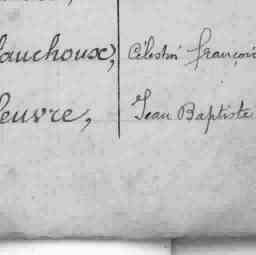 fauchoux, Célestin françois
leuvre, Jean Baptiste